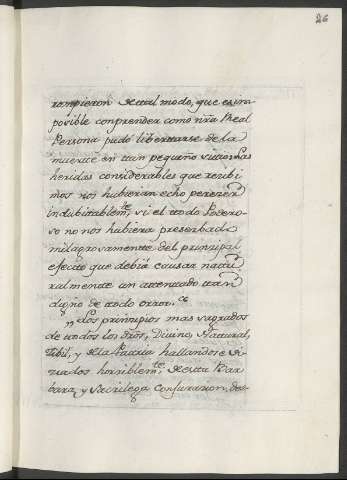 26
rompieron de tal modo, que es im
posible comprender como ntra Real
Persona pudo libertarse de la
muerte en tan pequeño sitio: las
heridas considerables que recibi
mos nos hubieran echo perezer
indubitablemte, si el todo Podero-
so no nos hubiera preserbado
milagrosamente del principal
efecto que debia causar natu
ralmente un atentado tan
digno de todo orror.
,, Los prinsipios mas sagrados
de todos los dros, Divino, Natural,
Cibil, y de la Patria hallandose vi-
olados horriblemte, de esta Bar
bara, y Sacrilega Conjuracion, de-